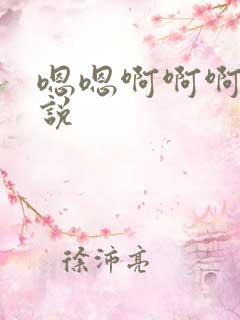 嗯嗯啊啊啊
說
徐沛亮